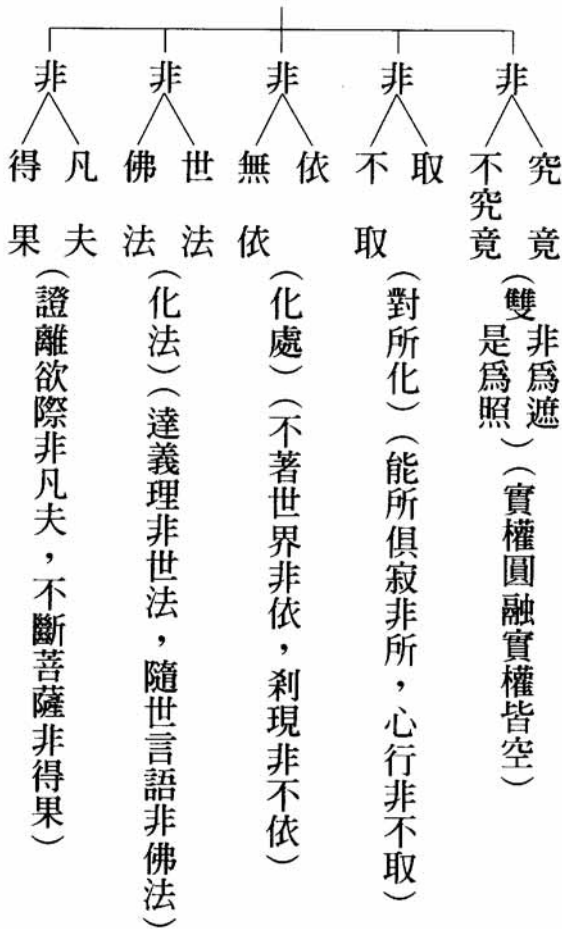 非
究竟
不究竟
（雙非爲遮
是爲照）（實權圓融實權皆空）
非
取
不取
（對所化）（能所俱寂非所，心行非不取）
非
依
無依
（化處）（不著世界非依，剎現非不依）
非
世法
佛法
（化法）（達義理非世法，隨世言語非佛法）
非
凡夫
得果
（證離欲際非凡夫，不斷菩薩非得果）